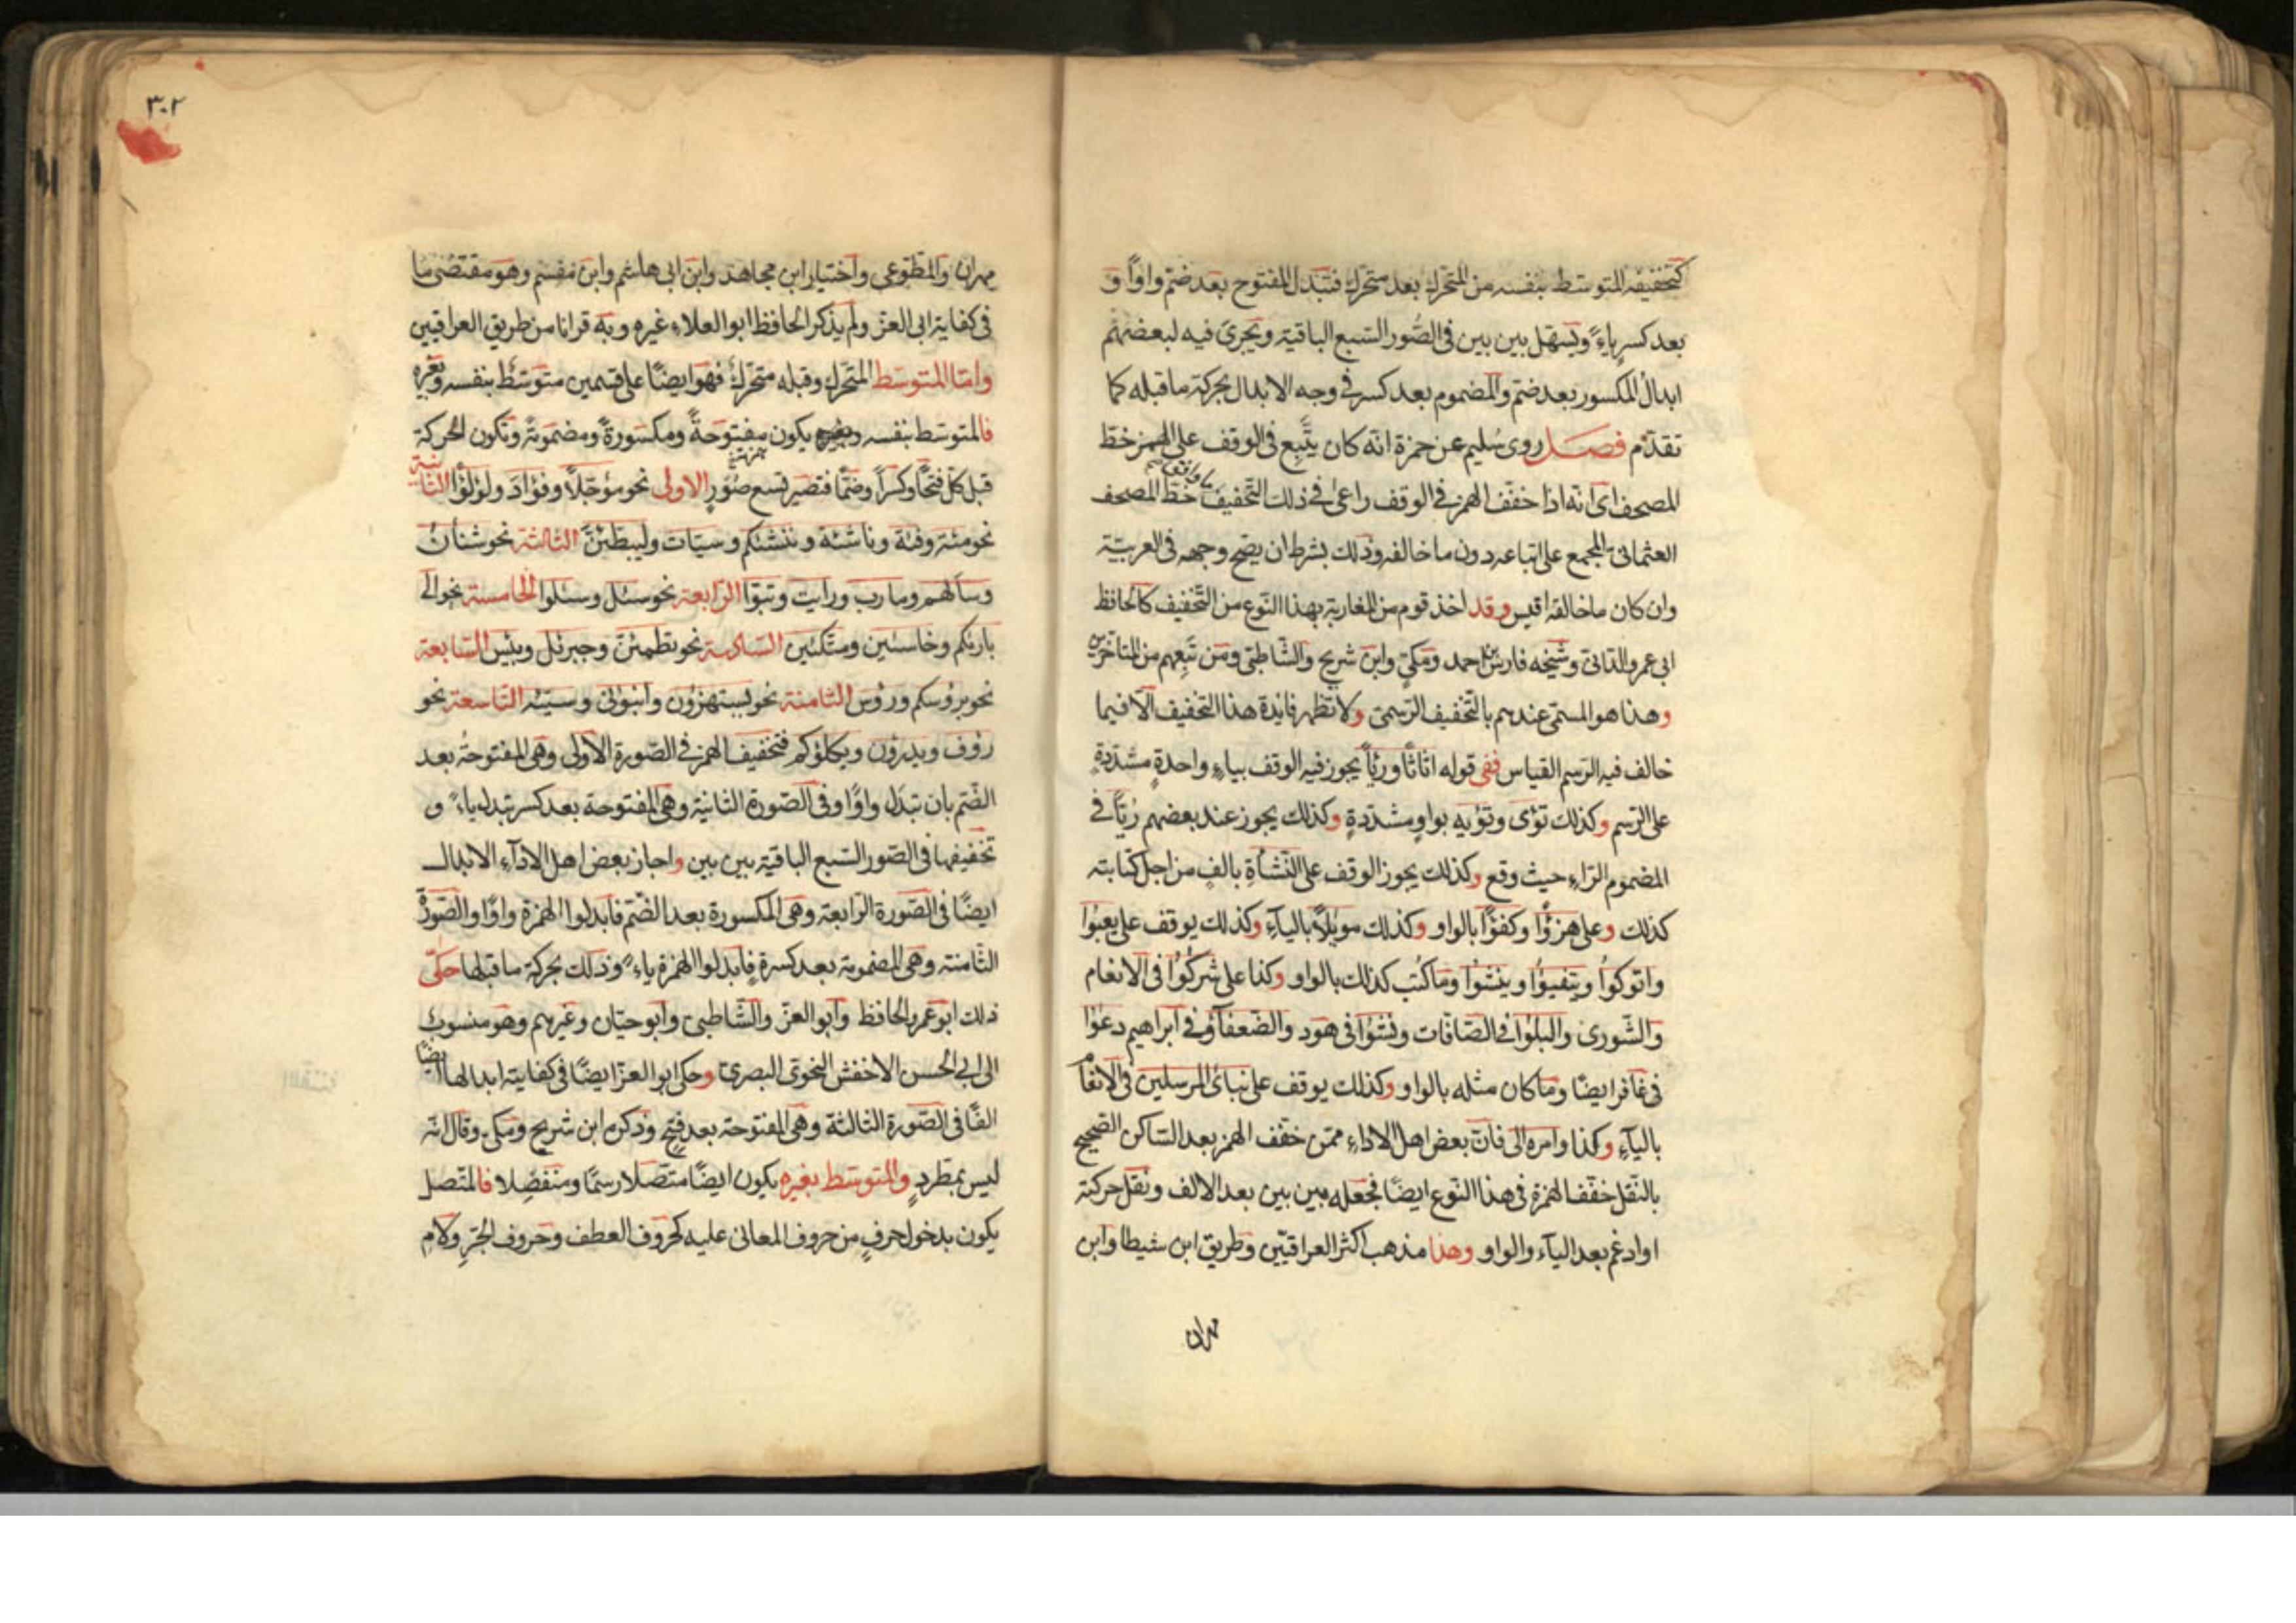 كتخفيفه المتوسط بنفسه من المتحرك بعد متحرك فتبدل المفتوح بعد ضم واوًا و
بعد كسرٍ ياءً ويسهل بين بين في الصور السبع الباقية ويجرى فيه لبعضهم
ابدال المكسور بعد ضم والمضموم بعد كسر في وجه الابدال بحركة ما قبله كما
تقدم فصل روى سليم عن حمزة انه كان يتبع في الوقف على الهمز خط
المصحف اى انه اذا خفف الهمز في الوقف راعى في ذلك التخفيف خط المصحف
العثمانى المجمع على اتباعه دون ما خالفه وذلك بشرط ان يصح وجهه في العربية
وان كان ما خالفه اقيس وقد اخذ قوم من المغاربة بهذا النوع من التخفيف كالحافظ
ابى عمرو الدانى وشيخه فارس بن احمد ومكي وابن شريح والشاطبى ومن تبعهم من المتأخرين
وهذا هو المسمى عندهم بالتخفيف الرسمى ولا تظهر فايدة هذا التخفيف الا فيما
خالف فيه الرسم القياس ففى قوله اثاثا ورئياً يجوز فيه الوقف بياءٍ واحدةٍ مشددةٍ
على الرسم وكذلك تؤى وتؤيه بواوٍ مشددةٍ وكذلك يجوز عند بعضهم ريّا في
المضموم الراء حيث وقع وكذلك يجوز الوقف على النشأة بالفٍ من اجل كتابته
كذلك وعلى هزؤا وكفؤا بالواو وكذلك موئلاً بالياء وكذلك يوقف على يعبؤا
واتوكؤا ويتفيؤا وينشؤا وما كتب كذلك بالواو وكذا على شركؤا في الانعام
والشورى والبلؤا في الصافات ونشؤا في هود والضعفاؤ في ابراهيم دعؤا
في غافر ايضا وما كان مثله بالواو وكذلك يوقف على نباى المرسلين في الانعام
بالياء وكذا وامره الى فان بعض اهل الاداء ممن خفف الهمز بعد الساكن الصحيح
بالنقل خفف الهمزة في هذا النوع ايضا فجعله بين بين بعد الالف ونقل حركته
او ادغم بعد الياء والواو وهذا مذهب اكثر العراقيين وطريق ابن شيطا وابن
مهران
٣٠٢
مهران والمطوعى واختيار ابن مجاهد وابن ابى هاشم وابن مقسم وهو مقتضى ما
في كفاية ابى العز ولم يذكر الحافظ ابو العلاء غيره وبه قرانا من طريق العراقيين
واما المتوسط المتحرك وقبله متحرك فهو ايضًا على قسمين متوسط بنفسه وبغيره
فالمتوسط بنفسه يكون همزته مفتوحةً ومكسورةً ومضمومةً وتكون الحركة
قبل كل فتحًا وكسراً وضمًا فتصير تسع صورٍ الاولى نحو مؤجلاً وفؤاد ولؤلؤا الثانية
نحو مئة وفئة وناشئة وننشئكم وسيئات وليبطئن الثالثة نحو شنأن
وسألهم ومأرب ورأيت وتبؤا الرابعة نحو سئل وسئلوا الخامسة نحو الى
بارئكم وخاسئين ومتكئين السادسة نحو تطمئن وجبرئل وبئس السابعة
نحو برؤسكم ورؤس الثامنة نحو يستهزؤن وانبؤنى وسيئه التاسعة نحو
رؤف ويدرؤن ويكلؤكم فتخفيف الهمز في الصورة الاولى وهى المفتوحة بعد
الضم بان تبدل واوًا وفي الصورة الثانية وهى المفتوحة بعد كسر تبدل ياءً و
تخفيفها في الصور السبع الباقية بين بين واجاز بعض اهل الاداء الابدال
ايضًا في الصورة الرابعة وهى المكسورة بعد الضم فابدلوا الهمزة واوًا والصورة
الثامنة وهى المضمومة بعد كسرةٍ فابدلوا الهمزة ياءً وذلك بحركة ما قبلها حكى
ذلك ابو عمرو الحافظ وابو العز والشاطبى وابو حيان وغيرهم وهو منسوب
الى ابى الحسن الاخفش النحوى البصرى وحكى ابو العز ايضًا في كفايته ابدالها ايضًا
الفًا في الصورة الثالثة وهى المفتوحة بعد فتحٍ وذكره ابن شريح ومكى وقال انه
ليس بمطردٍ والمتوسط بغيره يكون ايضًا متصلا رسمًا ومنفصلا فالمتصل
يكون بدخول حرفٍ من حروف المعانى عليه كحروف العطف وحروف الجر ولام